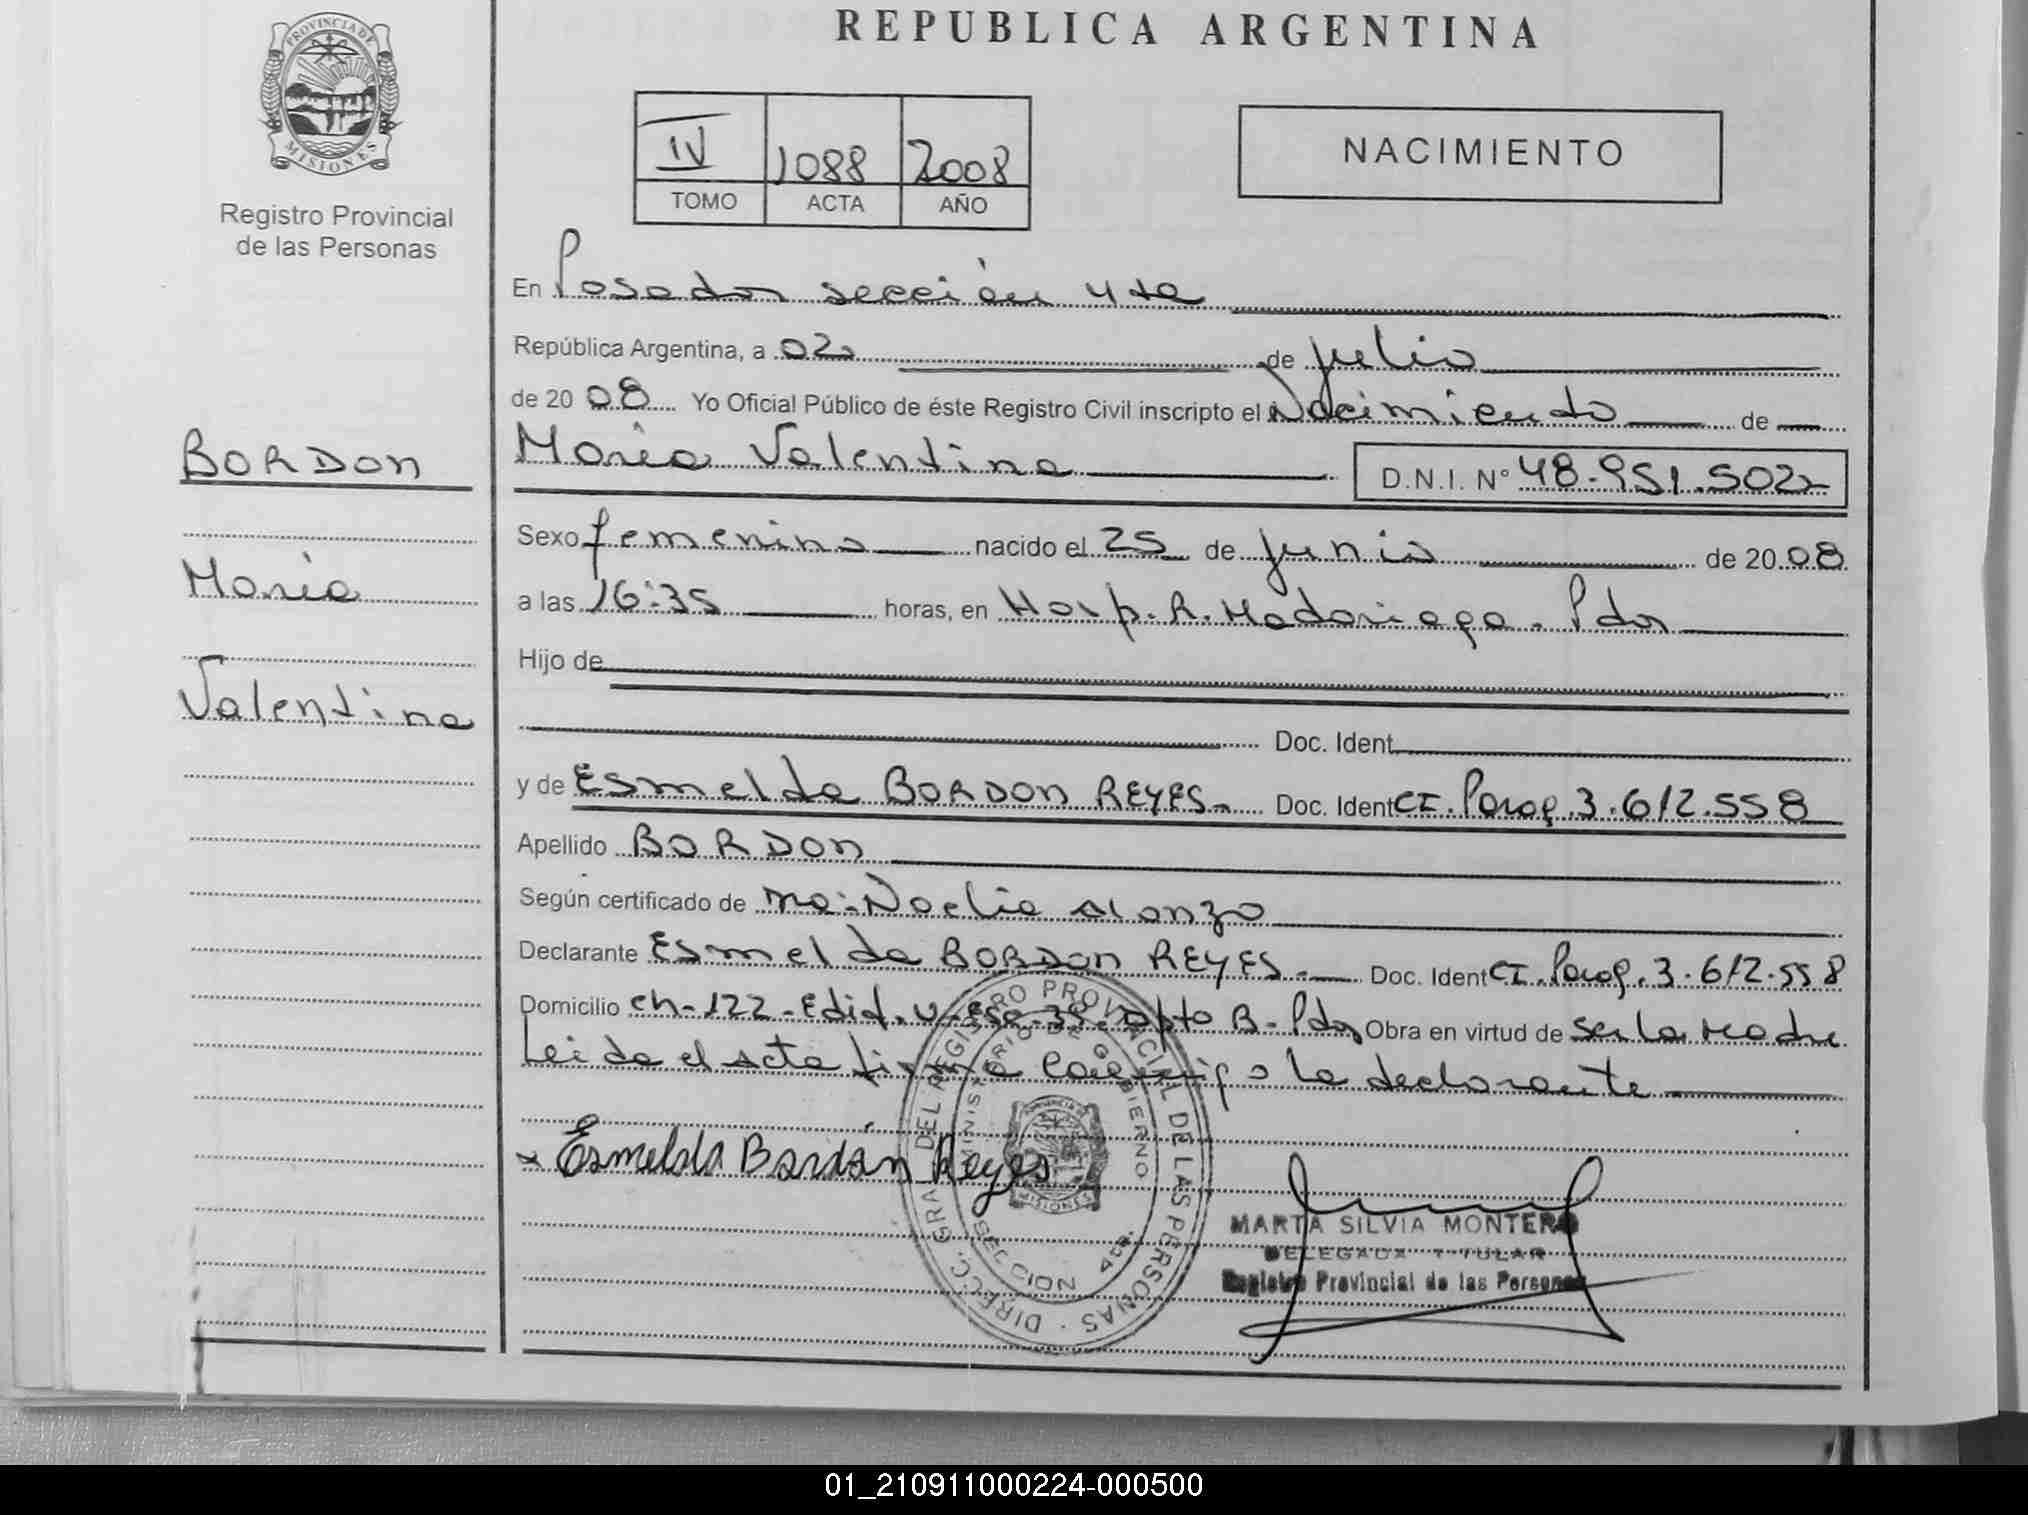 REPUBLICA ARGENTINA
PROVINCIA DE MISIONES
Registro Provincial
de las Personas
IV 1088 2008
TOMO ACTA AÑO
NACIMIENTO
En Posadas sección 4ta
República Argentina, a 02 de julio
de 2008 Yo Oficial Público de éste Registro Civil inscripto el Nacimiento de
María Valentina D.N.I. Nº 48.951.502
Sexo femenino nacido el 25 de junio de 2008
a las 16:35 horas, en Hosp. R. Madariaga. Pdas
Hijo de
Doc. Ident.
y de Esmelda BORDON REYES Doc. Ident CI. Parag. 3.612.558
Apellido BORDON
Según certificado de Ma. Noelia Alonzo
Declarante Esmelda BORDON REYES. Doc. Ident CI. Parag. 3.612.558
Domicilio ch-122-Edif. Esc. Dpto B- Pdas Obra en virtud de ser la madre
Leida el acta firma conmigo la declarante
Esmelda Bordón Reyes
BORDON
María
Valentina
DIRECC. GRAL. DEL REGISTRO PROVINCIAL DE LAS PERSONAS
MINISTERIO DE GOBIERNO
MISIONES
SECCION 4ta.
MARTA SILVIA MONTERO
DELEGADA TITULAR
Registro Provincial de las Personas
01_210911000224-000500